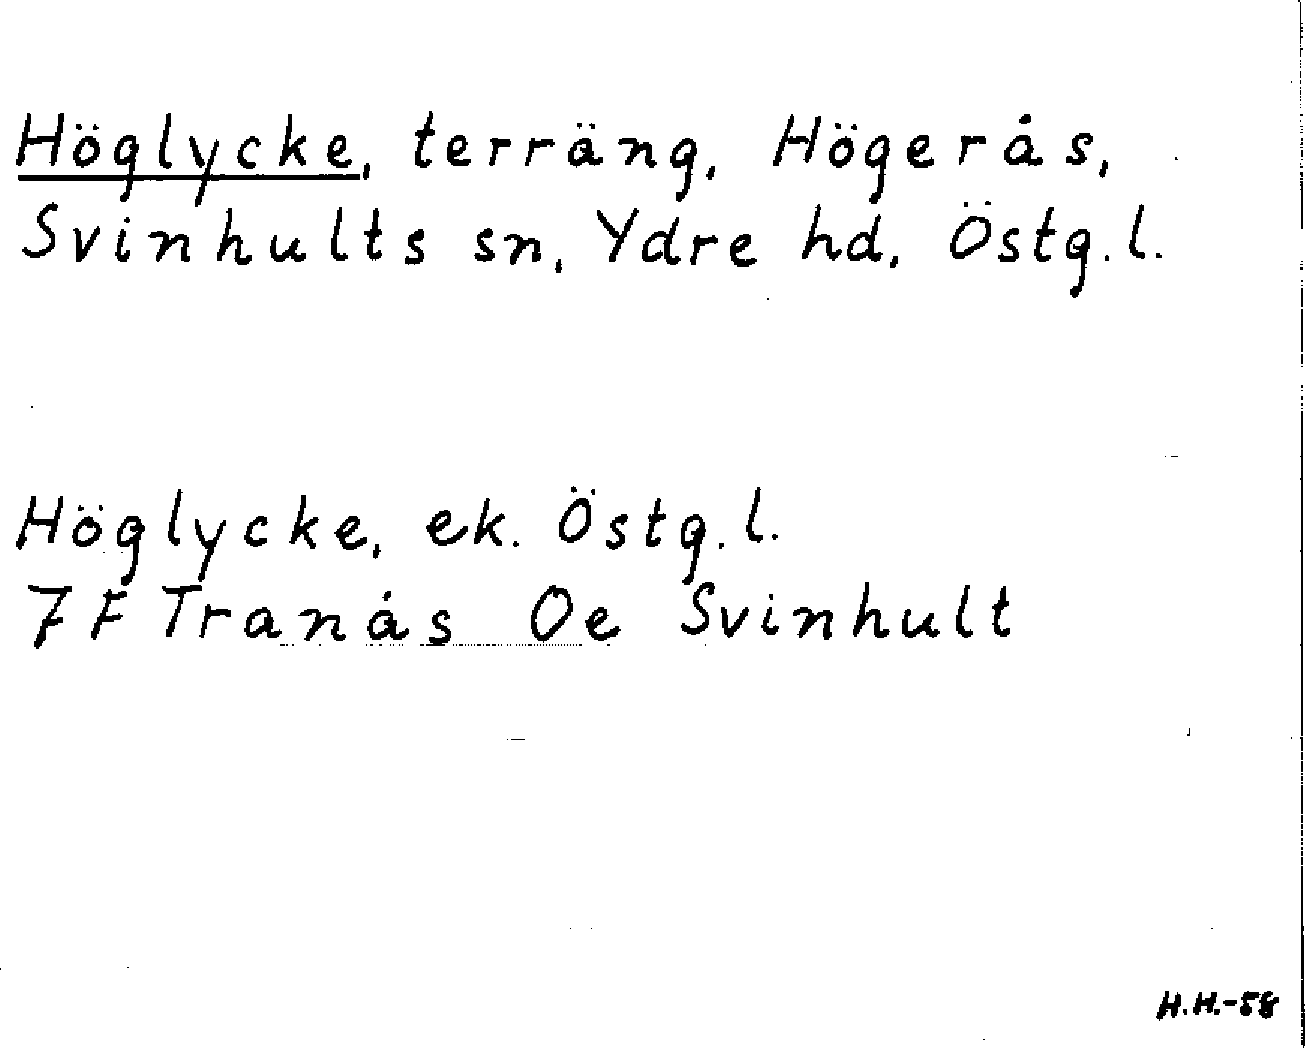 Höglycke, terräng, Högerås,
Svinhults sn, Ydre hd, Östg.l.
Höglycke, ek. Östg.l.
7F Tranås Oe Svinhult
H.H.-58